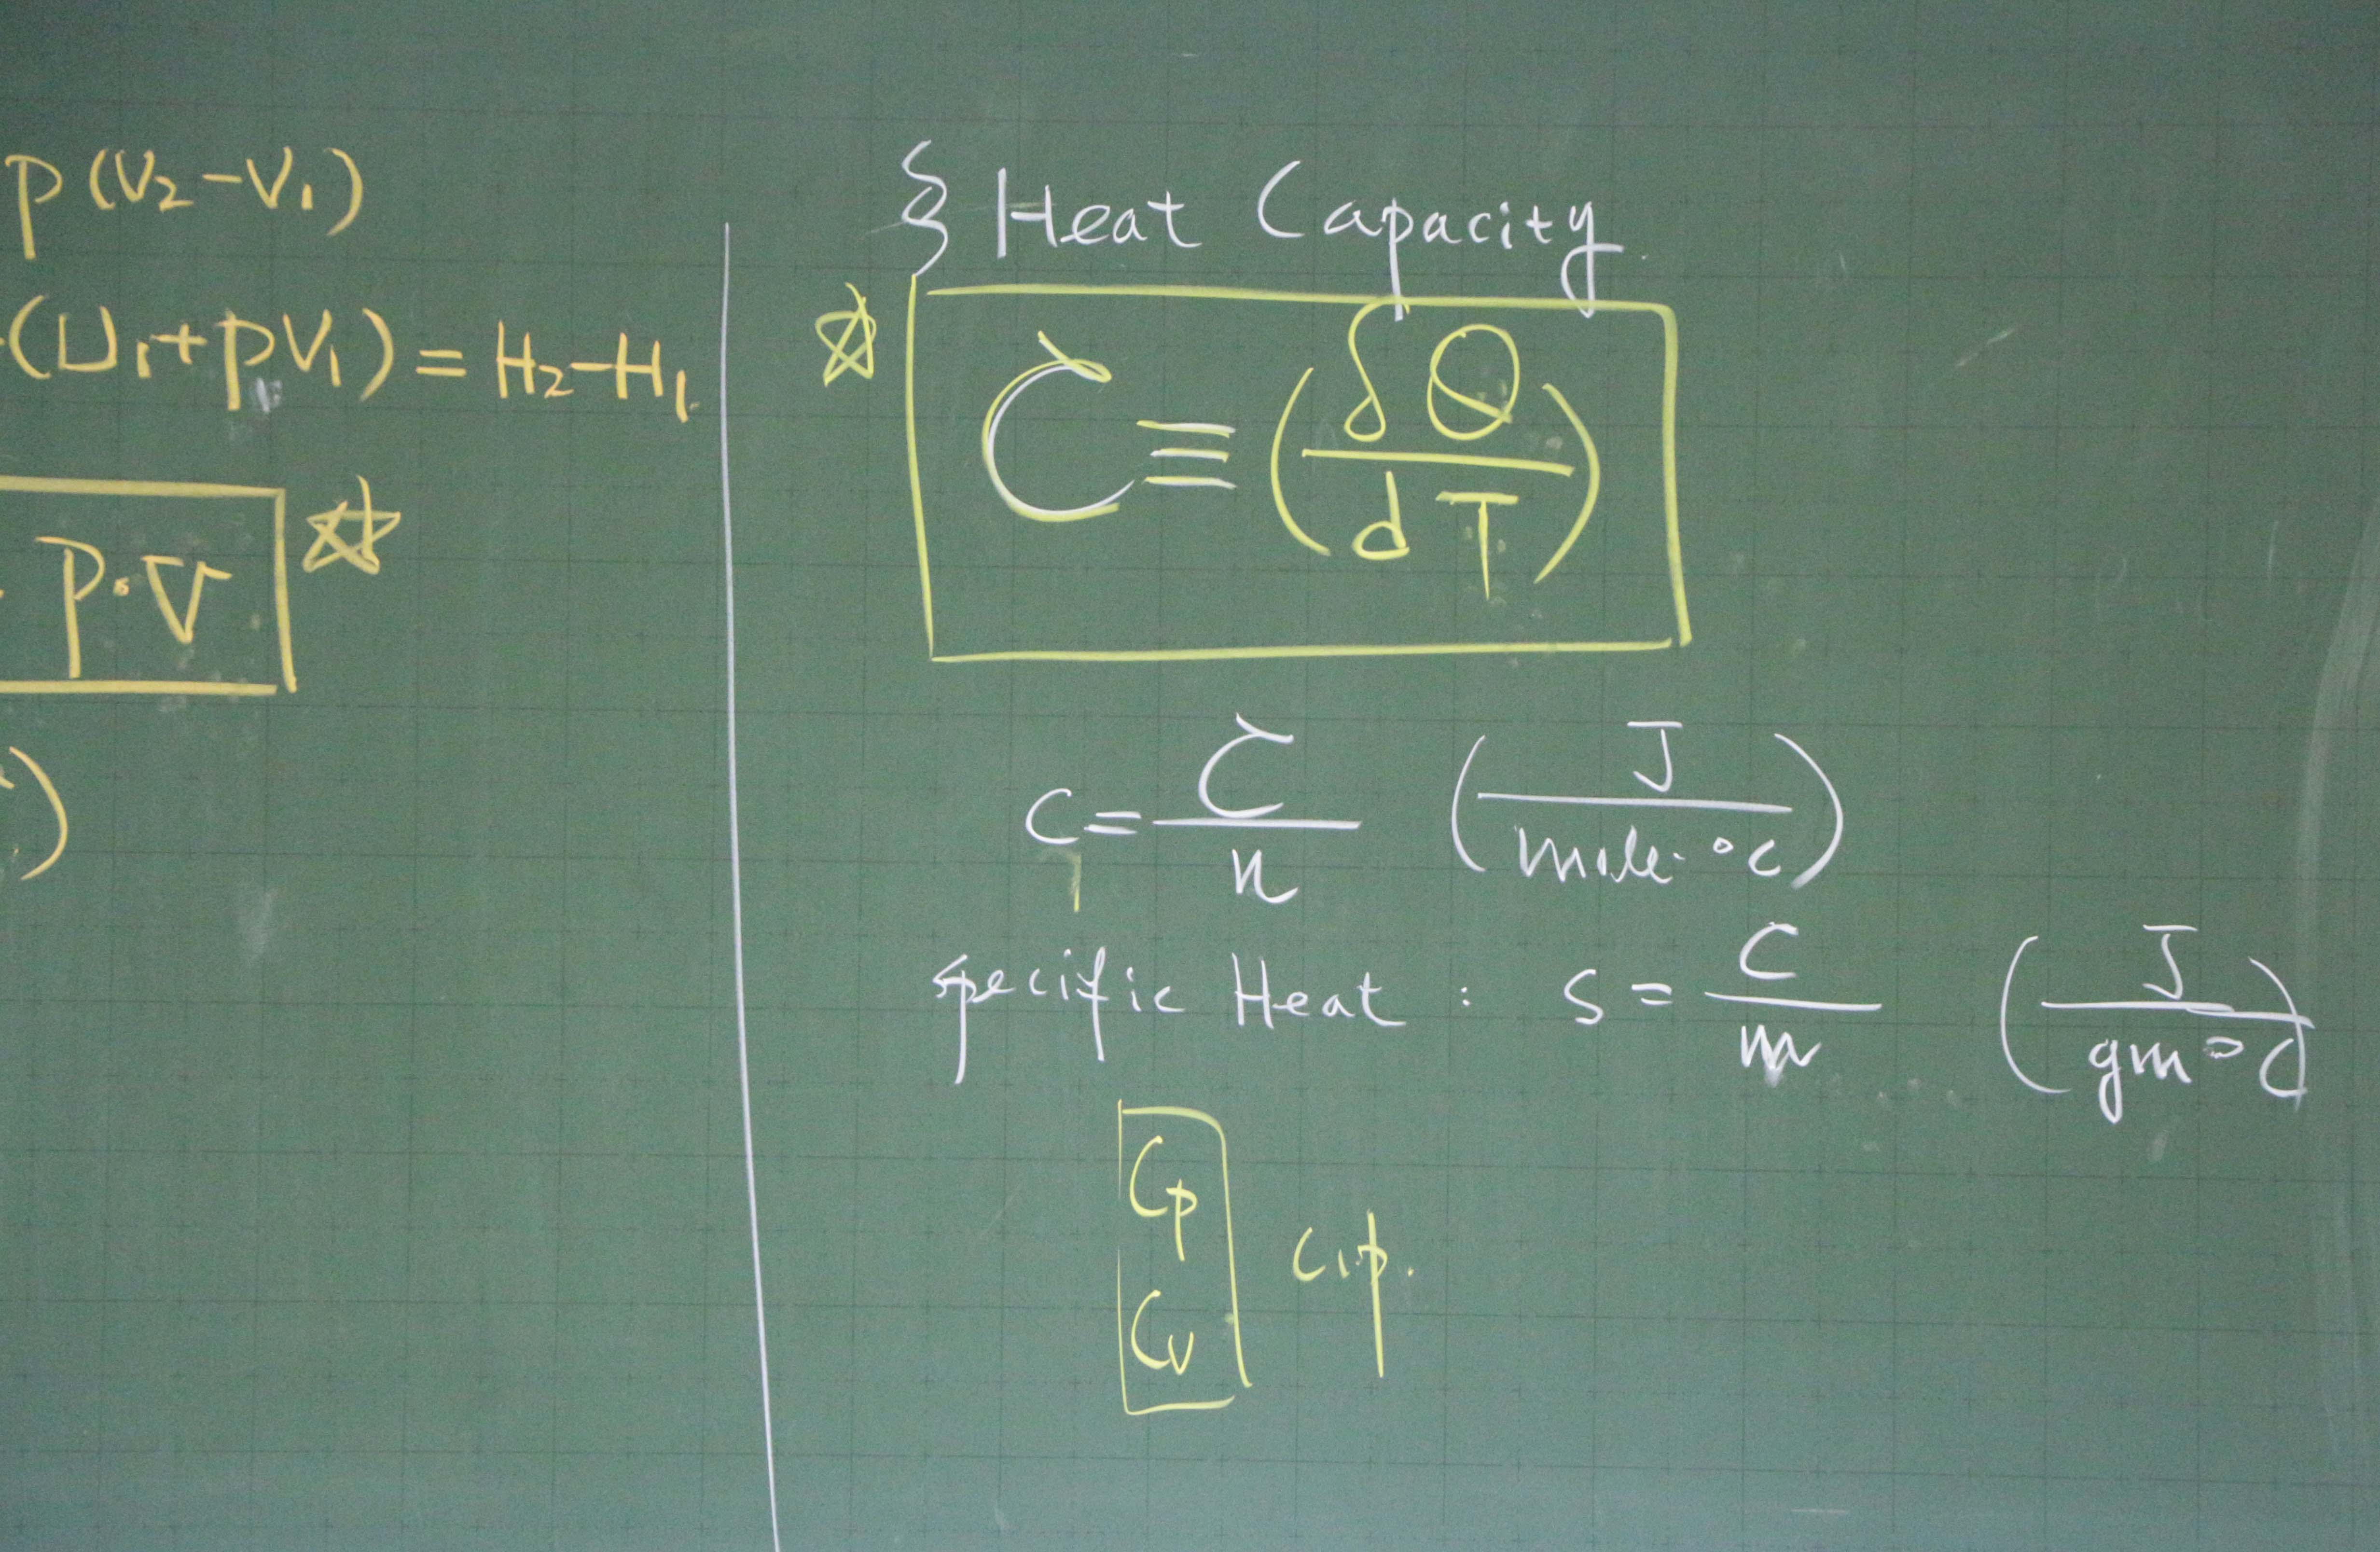 p(V₂-V₁)
(U₁+pV₁)=H₂-H₁
P·V
)
§ Heat Capacity
☆ C≡(δQ/dT)
c=C/n (J/mole·°C)
specific Heat : S=C/m (J/gm°C)
Cp
Cv